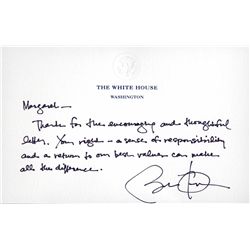 THE WHITE HOUSE
WASHINGTON
Margaret —
Thanks for the encouraging and thoughtful
letter. Your right – a sense of responsibility
and a return to our best values can make
all the difference.